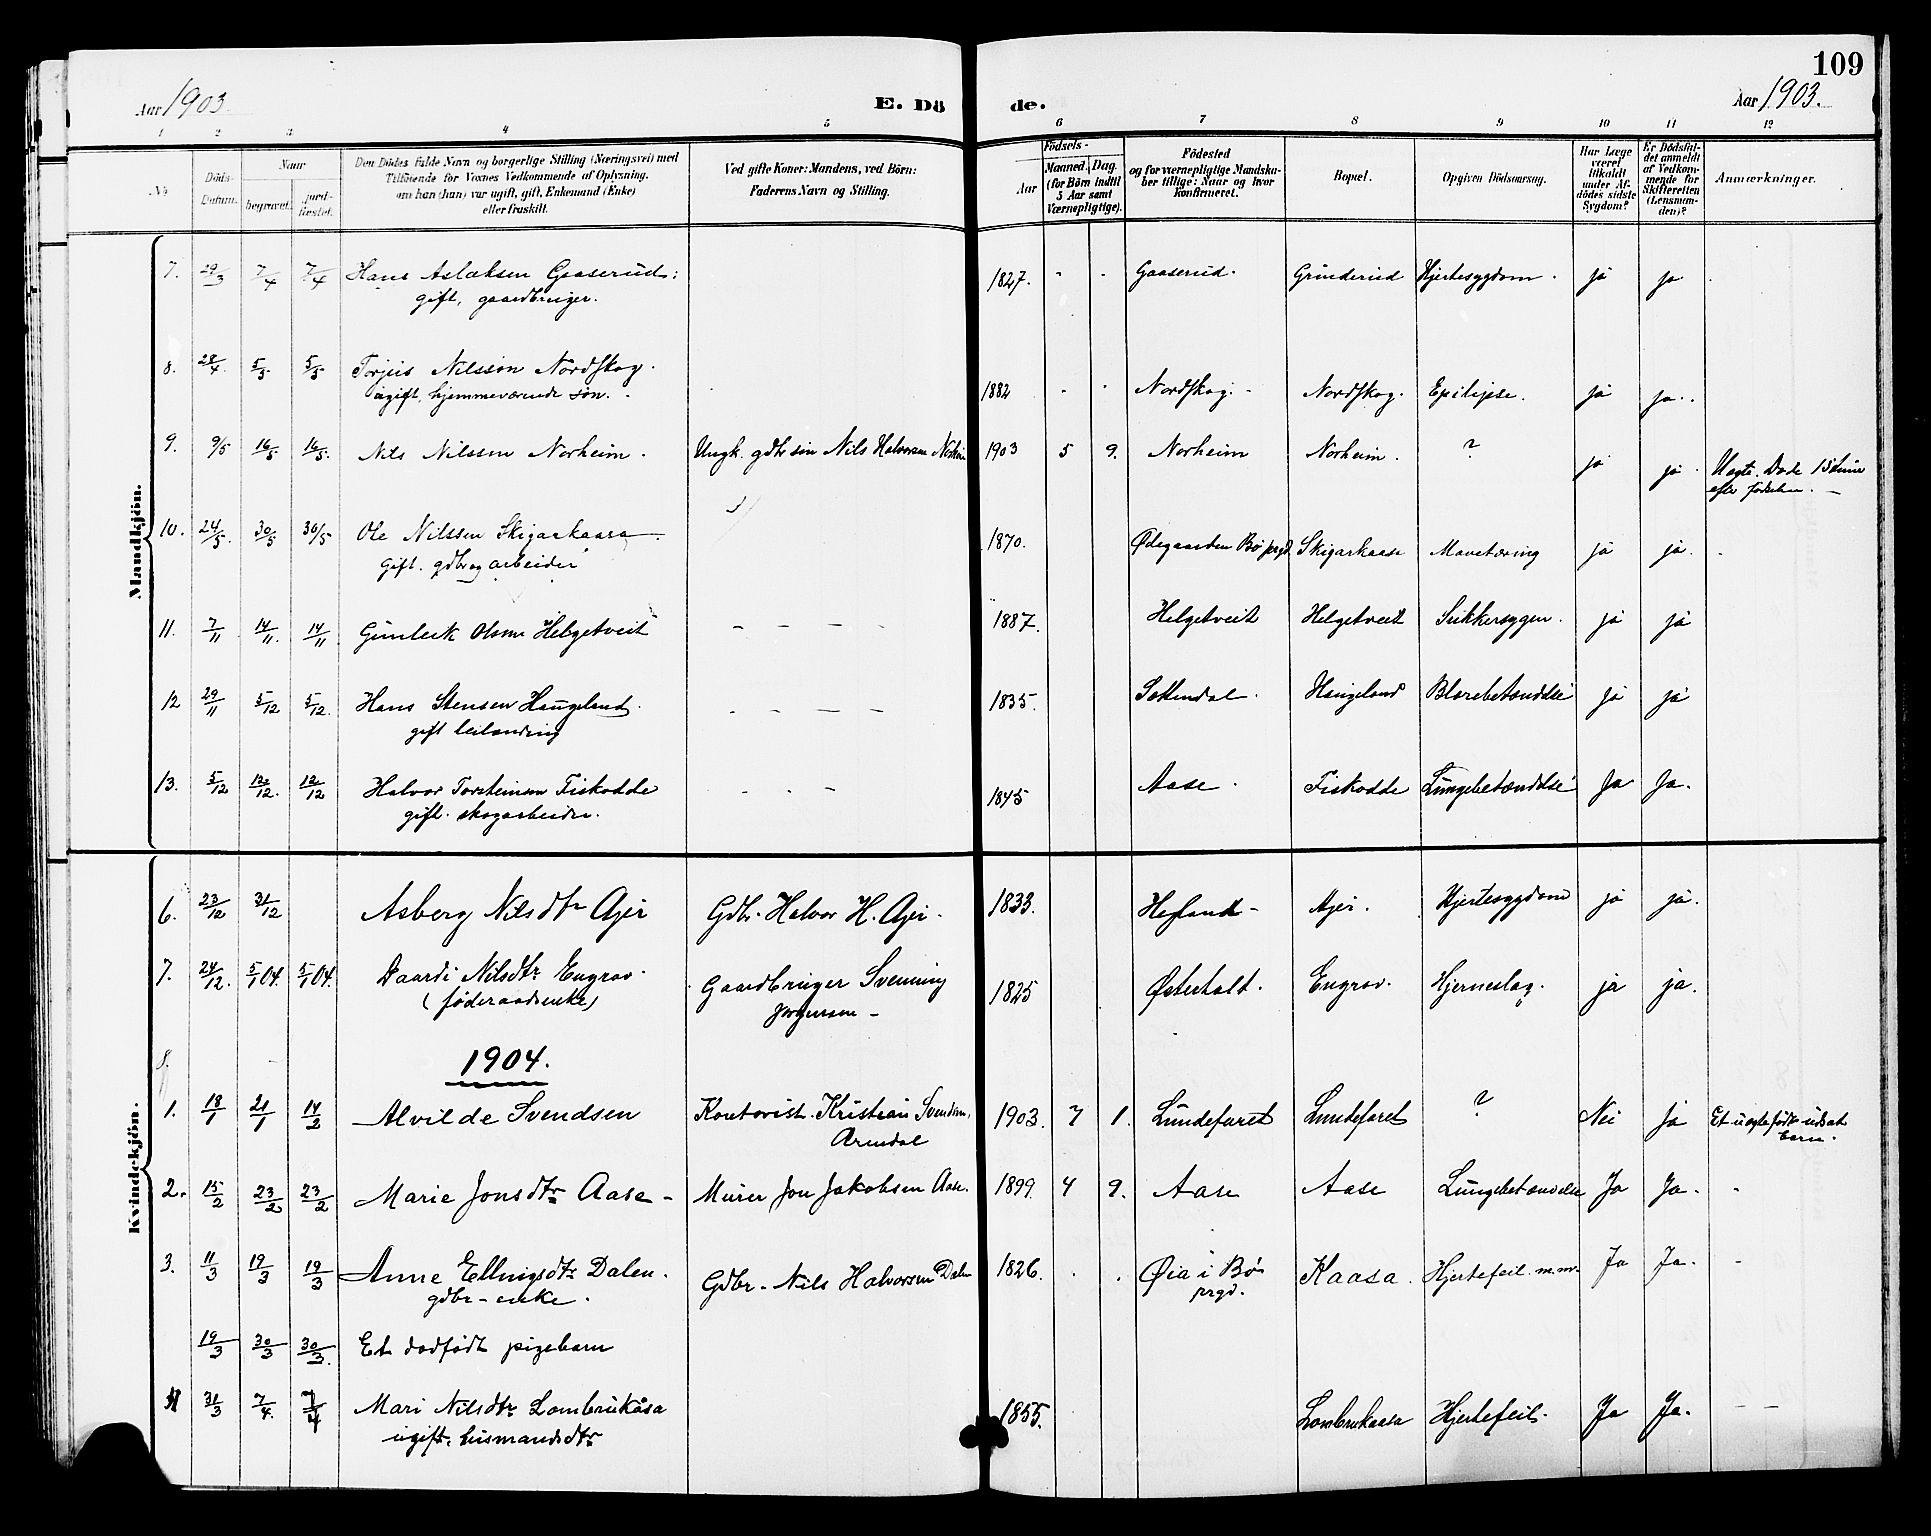 109
Aar 1903
E. Dö
de.
Aar 1903.
1 2 3 4 5 6 7 8 9 10 11 12
No
Döds-Datum.
Naar
begravet.
jord-fæstet.
Den Dødes fulde Navn og borgerlige Stilling (Næringsvei) med
Tilföiende for Voxnes Vedkommende af Oplysning,
om han (hun) var ugift, gift, Enkemand (Enke)
eller fraskilt.
Ved gifte Koner: Mandens, ved Börn:
Faderens Navn og Stilling.
Födsels-
Aar
Maaned. Dag.
(for Börn indtil
5 Aar samt
Værnepligtige).
Födested
og for værnepligtige Mandska-
ber tillige: Naar og hvor
konfirmeret.
Bopæl.
Opgiven Dödsaarsag.
Har Læge
været
tilkaldt
under Af-
dödes sidste
Sygdom?
Er Dödsfal-
det anmeldt
af Vedkom-
mende for
Skifteretten
(Lensman-
den)?
Anmærkninger.
Mandkjön.
7. 29/3 7/4 7/4 Hans Aslaksen Gaaserud: 1827. Gaaserud. Grinderud Hjertesygdom. ja ja
gift, gaardbruger.
8. 28/4 5/5 5/5 Torjus Nilsson Nordskog. 1882 Nordskog. Nordskog. Epilepse. ja ja.
ugift, hjemmeværende søn.
9. 9/5 16/5 16/5. Nils Nilssen Norheim. Ungk. gdbr søn Nils Halvorsen 1903 5 9. Norheim Norheim. ? ja ja. Uægte. Døde 15 
efter fødselen.
10. 24/5. 30/5 30/5 Ole Nilssen Skigarkaasa 1870. Ødegaarden Bø prgd. Skigarkaase Mavetæring ja ja.
gift. gdbr og arbeider
11. 7/11 14/11. 14/11 Gunleik Olsen Helgetveit - - - - 1887. Helgetveit Helgetveit Sukkersygen. ja ja
12 29/11 5/12 5/12. Hans Stensen Haugeland. - - - - 1835. Haugeland Blærebetændelse ja ja
gift leilænding
13. 5/12 12/12. 12/12 Halvor Torsteinsen Fiskodde - - - 1845 Aase. Fiskodde Lungebetændelse Ja Ja.
gift. skogarbeider.
Kvindekjön.
6. 23/12 31/12 Asberg Nilsdtr Ajer Gdbr. Halvor H. Ajer. 1833. Hegland Ajer. Hjertesygdom ja ja.
7. 24/12. 5/1 04. 5/1 04. Daardi Nilsdtr. Engrav. Gaardbruger Svenning 1825 Østerholt. Engrav. Hjerneslag. ja ja.
(føderaadsenke) Jørgensen -
8. 1904.
1. 18/1 21/1 14/2 Alvilde Svendsen Kontorist. Kristian Svendsen, 1903. 7 1. Lundefaret Lundefaret ? Nei ja Et uægtefødt udsat
Arendal barn.
2. 15/2 23/2 23/2 Marie Jonsdtr Aase - Murer Jon Jakobsen Aase. 1899. 4 9. Aase Aase Lungebetændelse Ja Ja.
3. 11/3 19/3 19/3 Anne Ellingsdtr Dalen. Gdbr. Nils Halvorsen Dalen 1826. Øia i Bø Kaasa. Hjertefeil m.m. Ja Ja.
gdbr-enke. prgd.
19/3 30/3 30/3. Et dødfødt pigebarn
4 31/3 7/4. 7/4 Mari Nilsdtr Lombrukåsa 1855. Lombrukaasa Hjertefeil. Ja Ja.
ugift, husmandsdtr